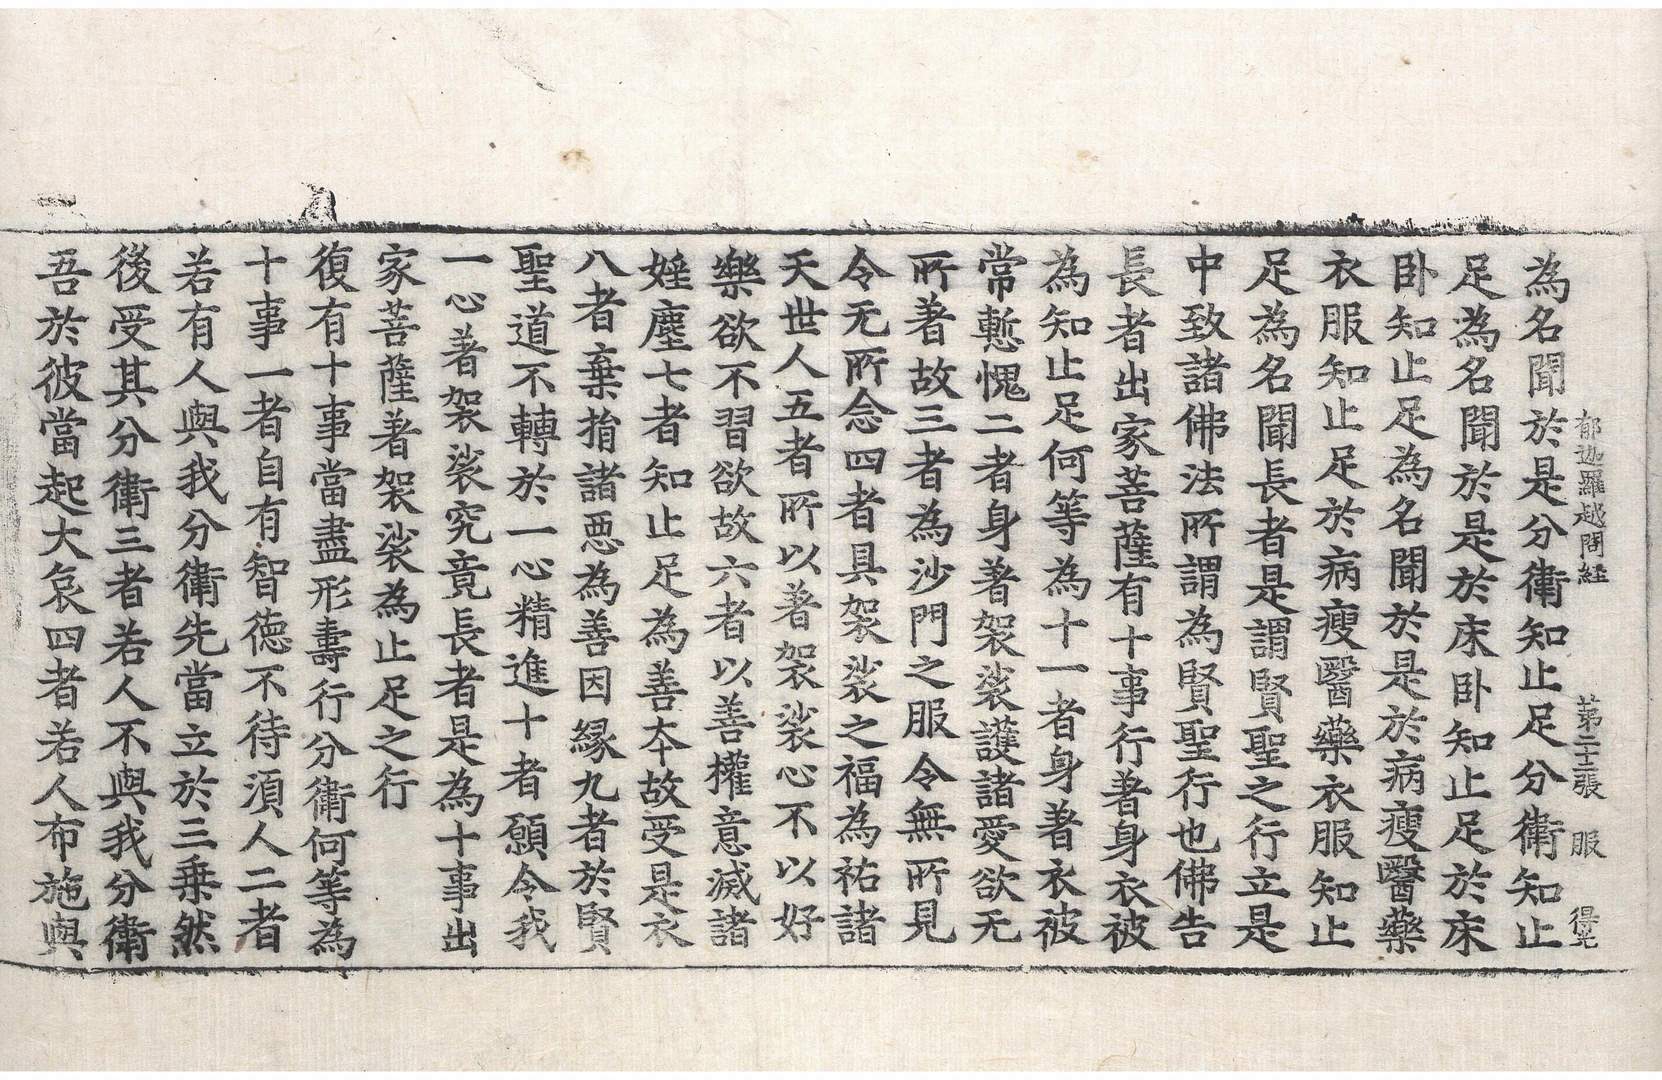 郁迦羅越問経 第二十三張 服 得光
為名聞於是分衛知止足分衛知止
足為名聞於是於床卧知止足於床
卧知止足為名聞於是於病瘦醫藥
衣服知止足於病瘦醫藥衣服知止
足為名聞長者是謂賢聖之行立是
中致諸佛法所謂為賢聖行也佛告
長者出家菩薩有十事行著身衣被
為知止足何等為十一者身著衣被
常慙愧二者身著袈裟護諸愛欲无
所著故三者為沙門之服令無所見
令无所念四者具袈裟之福為祐諸
天世人五者所以著袈裟心不以好
樂欲不習欲故六者以善權意滅諸
婬塵七者知止足為善本故受是衣
八者棄捐諸惡為善因縁九者於賢
聖道不轉於一心精進十者願令我
一心著袈裟究竟長者是為十事出
家菩薩著袈裟為止足之行
復有十事當盡形壽行分衛何等為
十事一者自有智德不待湏人二者
若有人與我分衛先當立於三乗然
後受其分衛三者若人不與我分衛
吾於彼當起大哀四者若人布施與